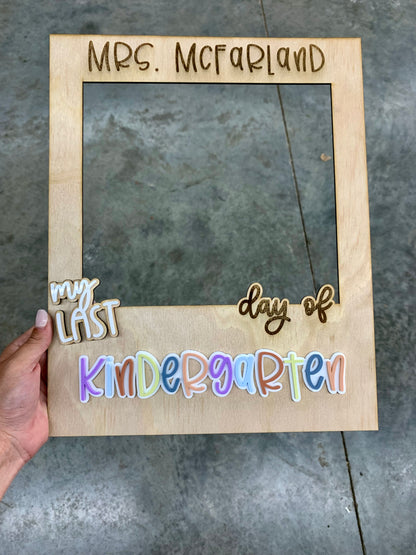 MRS. McFARLAND
my
LAST
day of
Kindergarten